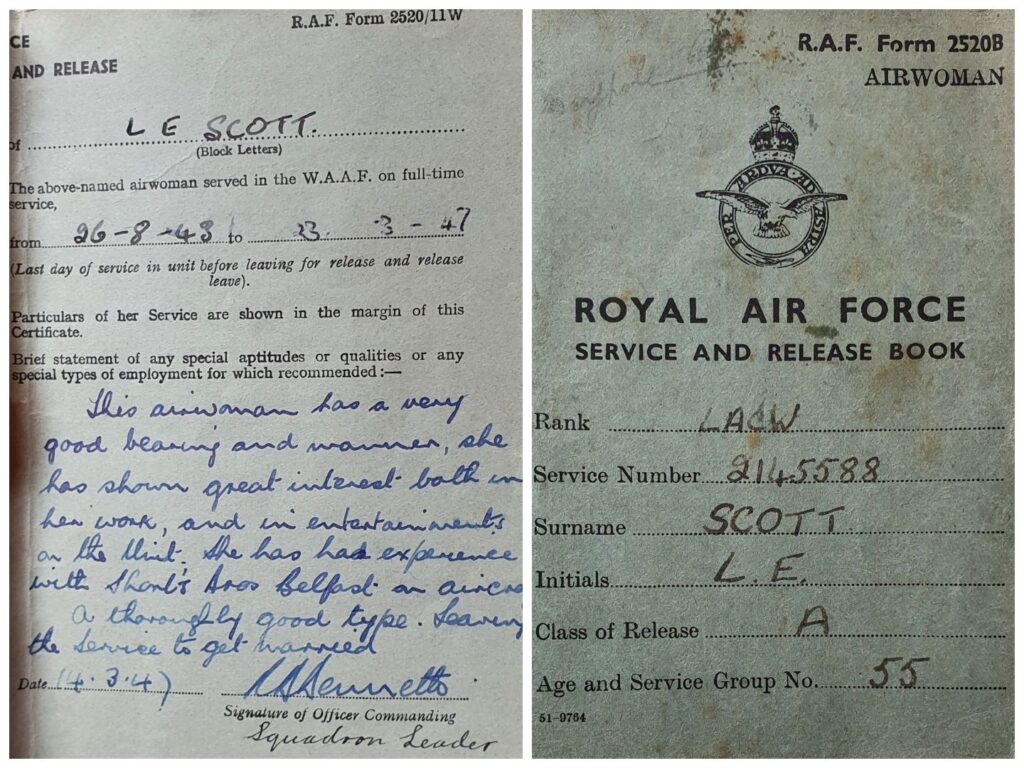 R.A.F. Form 2520/11W
CE
AND RELEASE
of L E SCOTT.
(Block Letters)
The above-named airwoman served in the W.A.A.F. on full-time
service,
from 26-8-43 to 23. 3 - 47
(Last day of service in unit before leaving for release and release
leave).
Particulars of her Service are shown in the margin of this
Certificate.
Brief statement of any special aptitudes or qualities or any
special types of employment for which recommended:—
This airwoman has a very
good bearing and manner, she
has shown great interest both in
her work, and in entertainments
on the Unit. She has had experience
with Short's Bros Belfast on aircra
A thoroughly good type. Leaving
the Service to get married
Date 14.3.47
Signature of Officer Commanding
Squadron Leader
R.A.F. Form 2520B
AIRWOMAN
PER ARDVA AD ASTRA
ROYAL AIR FORCE
SERVICE AND RELEASE BOOK
Rank LACW
Service Number 2145588
Surname SCOTT.
Initials L. E.
Class of Release A
Age and Service Group No. 55
51-9764